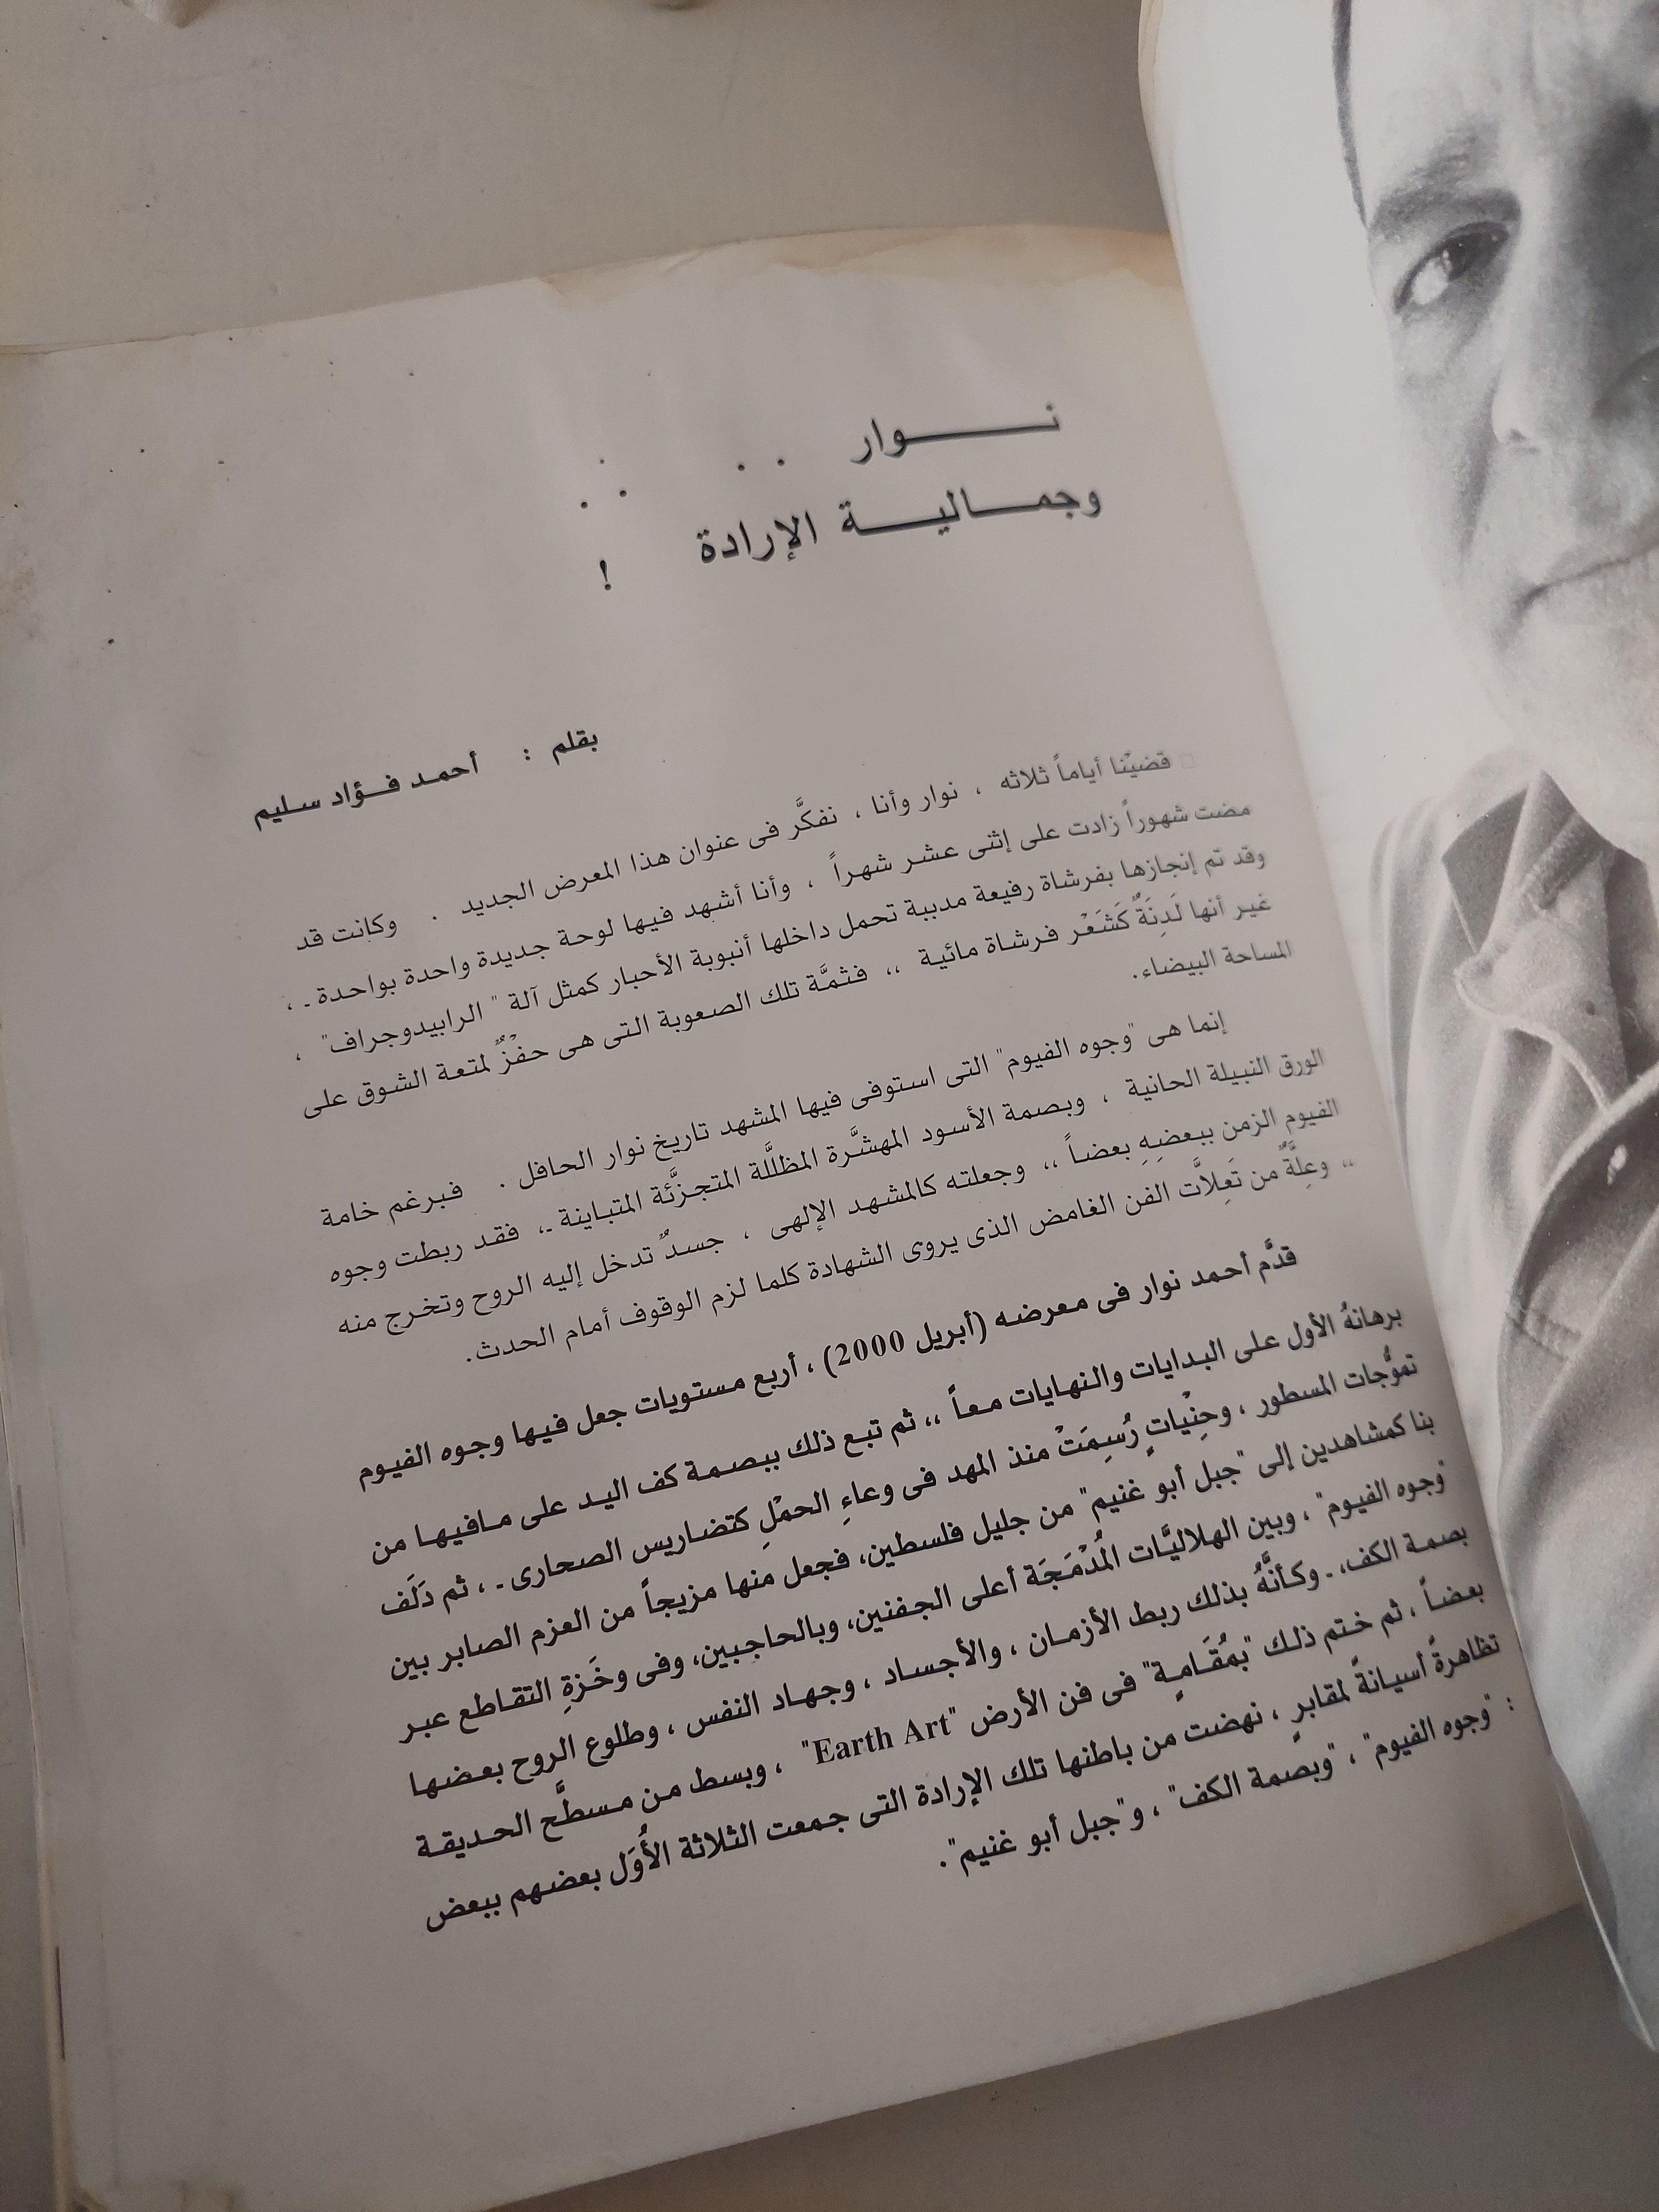 نـــــــوار . .
. .
.
وجمـــاليـــــة الإرادة !
بقلم : أحمـد فـؤاد سـليم
قضيْنا أياماً ثلاثه ، نوار وأنا ، نفكَّر فى عنوان هذا المعرض الجديد . وكانت قد
مضت شهوراً زادت على إثنى عشر شهراً ، وأنا أشهد فيها لوحة جديدة واحدة بواحدة ـ ،
وقد تم إنجازها بفرشاة رفيعة مدببة تحمل داخلها أنبوبة الأحبار كمثل آلة " الرابيدوجراف" ،
غير أنها لَدِنَةٌ كَشَعَْر فرشاة مائية ،، فثمَّة تلك الصعوبة التى هى حفْزٌ لمتعة الشوق على
المساحة البيضاء.
إنما هى "وجوه الفيوم" التى استوفى فيها المشهد تاريخ نوار الحافل . فبرغم خامة
الورق النبيلة الحانية ، وبصمة الأسود المهشَّرة المظللَّة المتجزَّئة المتباينة ـ، فقد ربطت وجوه
الفيوم الزمن ببعضِهِ بعضاً ،، وجعلته كالمشهد الإلهى ، جسدٌ تدخل إليه الروح وتخرج منه
،، وعِلةٌَّ من تَعِلاَّت الفن الغامض الذى يروى الشهادة كلما لزم الوقوف أمام الحدث.
قدَّم أحمد نوار فى معرضه (أبريل 2000) ، أربع مستويات جعل فيها وجوه الفيوم
برهانهُ الأول على البدايات والنهايات معاً ،، ثم تبع ذلك ببصمة كف اليد على مافيها من
تموُّجات المسطور ، وحِنْياتٍ رُسِمَتْ منذ المهد فى وعاءِ الحمْلِ كتضاريس الصحارى ـ ، ثم دَلَف
بنا كمشاهدين إلى "جبل أبو غنيم" من جليل فلسطين، فجعل منها مزيجاً من العزم الصابر بين
"وجوه الفيوم" ، وبين الهلاليَّات المُدْمَجَة أعلى الجفنين، وبالحاجبين، وفى وخَزةِ التقاطع عبر
بصمة الكف، ـ وكأنَّهُ بذلك ربط الأزمان ، والأجساد ، وجهاد النفس ، وطلوع الروح بعضها
بعضاً ، ثم ختم ذلك "بمُقَامِةٍ" فى فن الأرض "Earth Art" ، وبسط من مسطَّح الحديقة
تظاهرةً أسيانةً لمقابرٍ ، نهضت من باطنها تلك الإرادة التى جمعت الثلاثة الأُوَل بعضهم ببعض
: "وجوه الفيوم" ، "وبصمة الكف" ، و"جبل أبو غنيم".